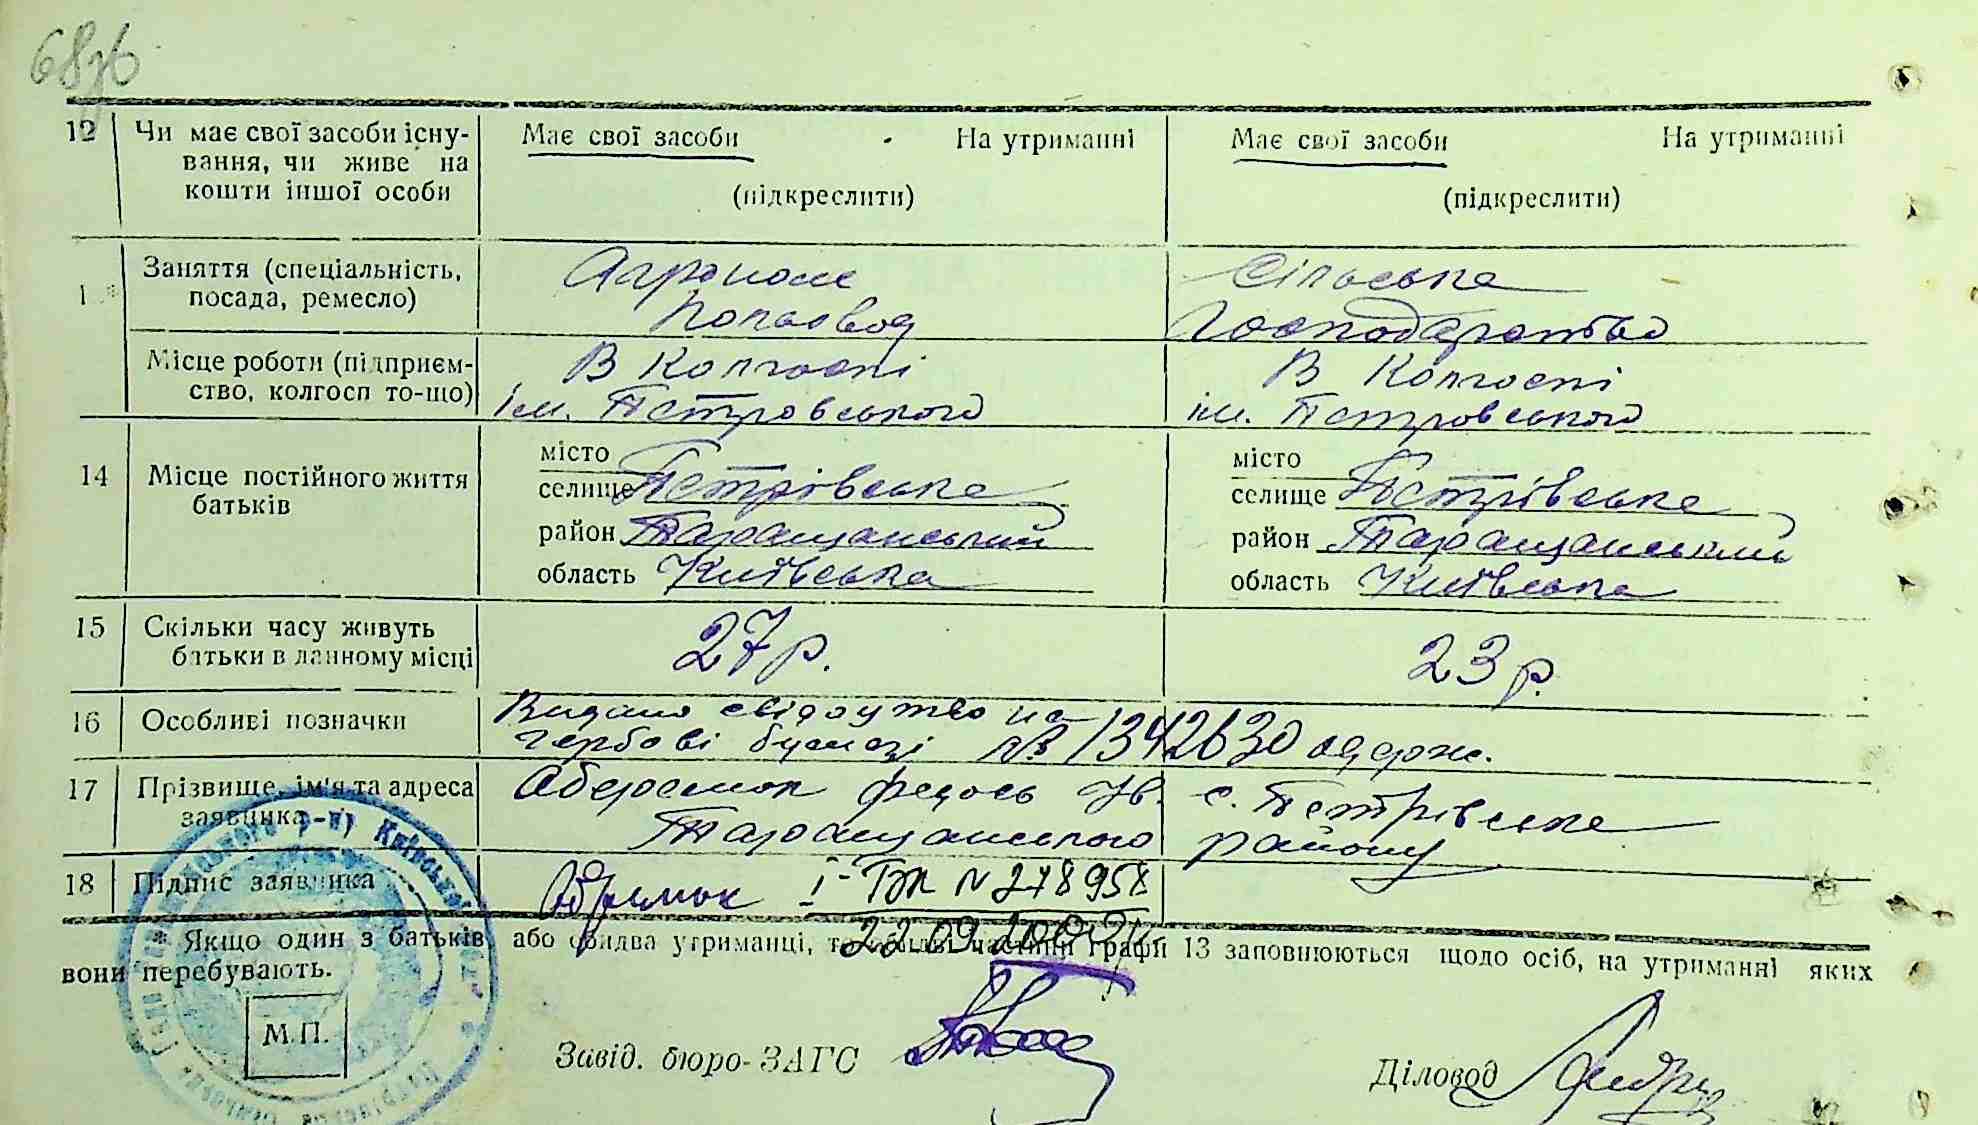 68зб
12 Чи має свої засоби існу- Має свої засоби На утриманні Має свої засоби На утриманні
вання, чи живе на
кошти іншої особи (підкреслити) (підкреслити)
1 * Заняття (спеціальність, Агроном Сільське
посада, ремесло) Польовод Господарство
Місце роботи (підприєм- В Колгоспі В Колгоспі
ство, колгосп то-що) ім. Петровського ім. Петровського
14 Місце постійного життя місто місто
батьків селище Петрівське селище Петрівське
район Таращанський район Таращанський
область Київська область Київська
15 Скільки часу живуть 27 р. 23 р.
батьки в данному місці
16 Особливі позначки Видано свідоцтво на
гербові бумазі № 1342630 одерж.
17 Прізвище, ім'я та адреса Федось Ів. с. Петрівське
заявника Таращанського району
18 Підпис заявника І-БК N 278958
22 09
* Якщо один з батьків, або обидва утриманці, то частини графи 13 заповнюються щодо осіб, на утриманні яких
вони перебувають.
р-ну Київської
М.П.
Завід. бюро-ЗАГС Діловод